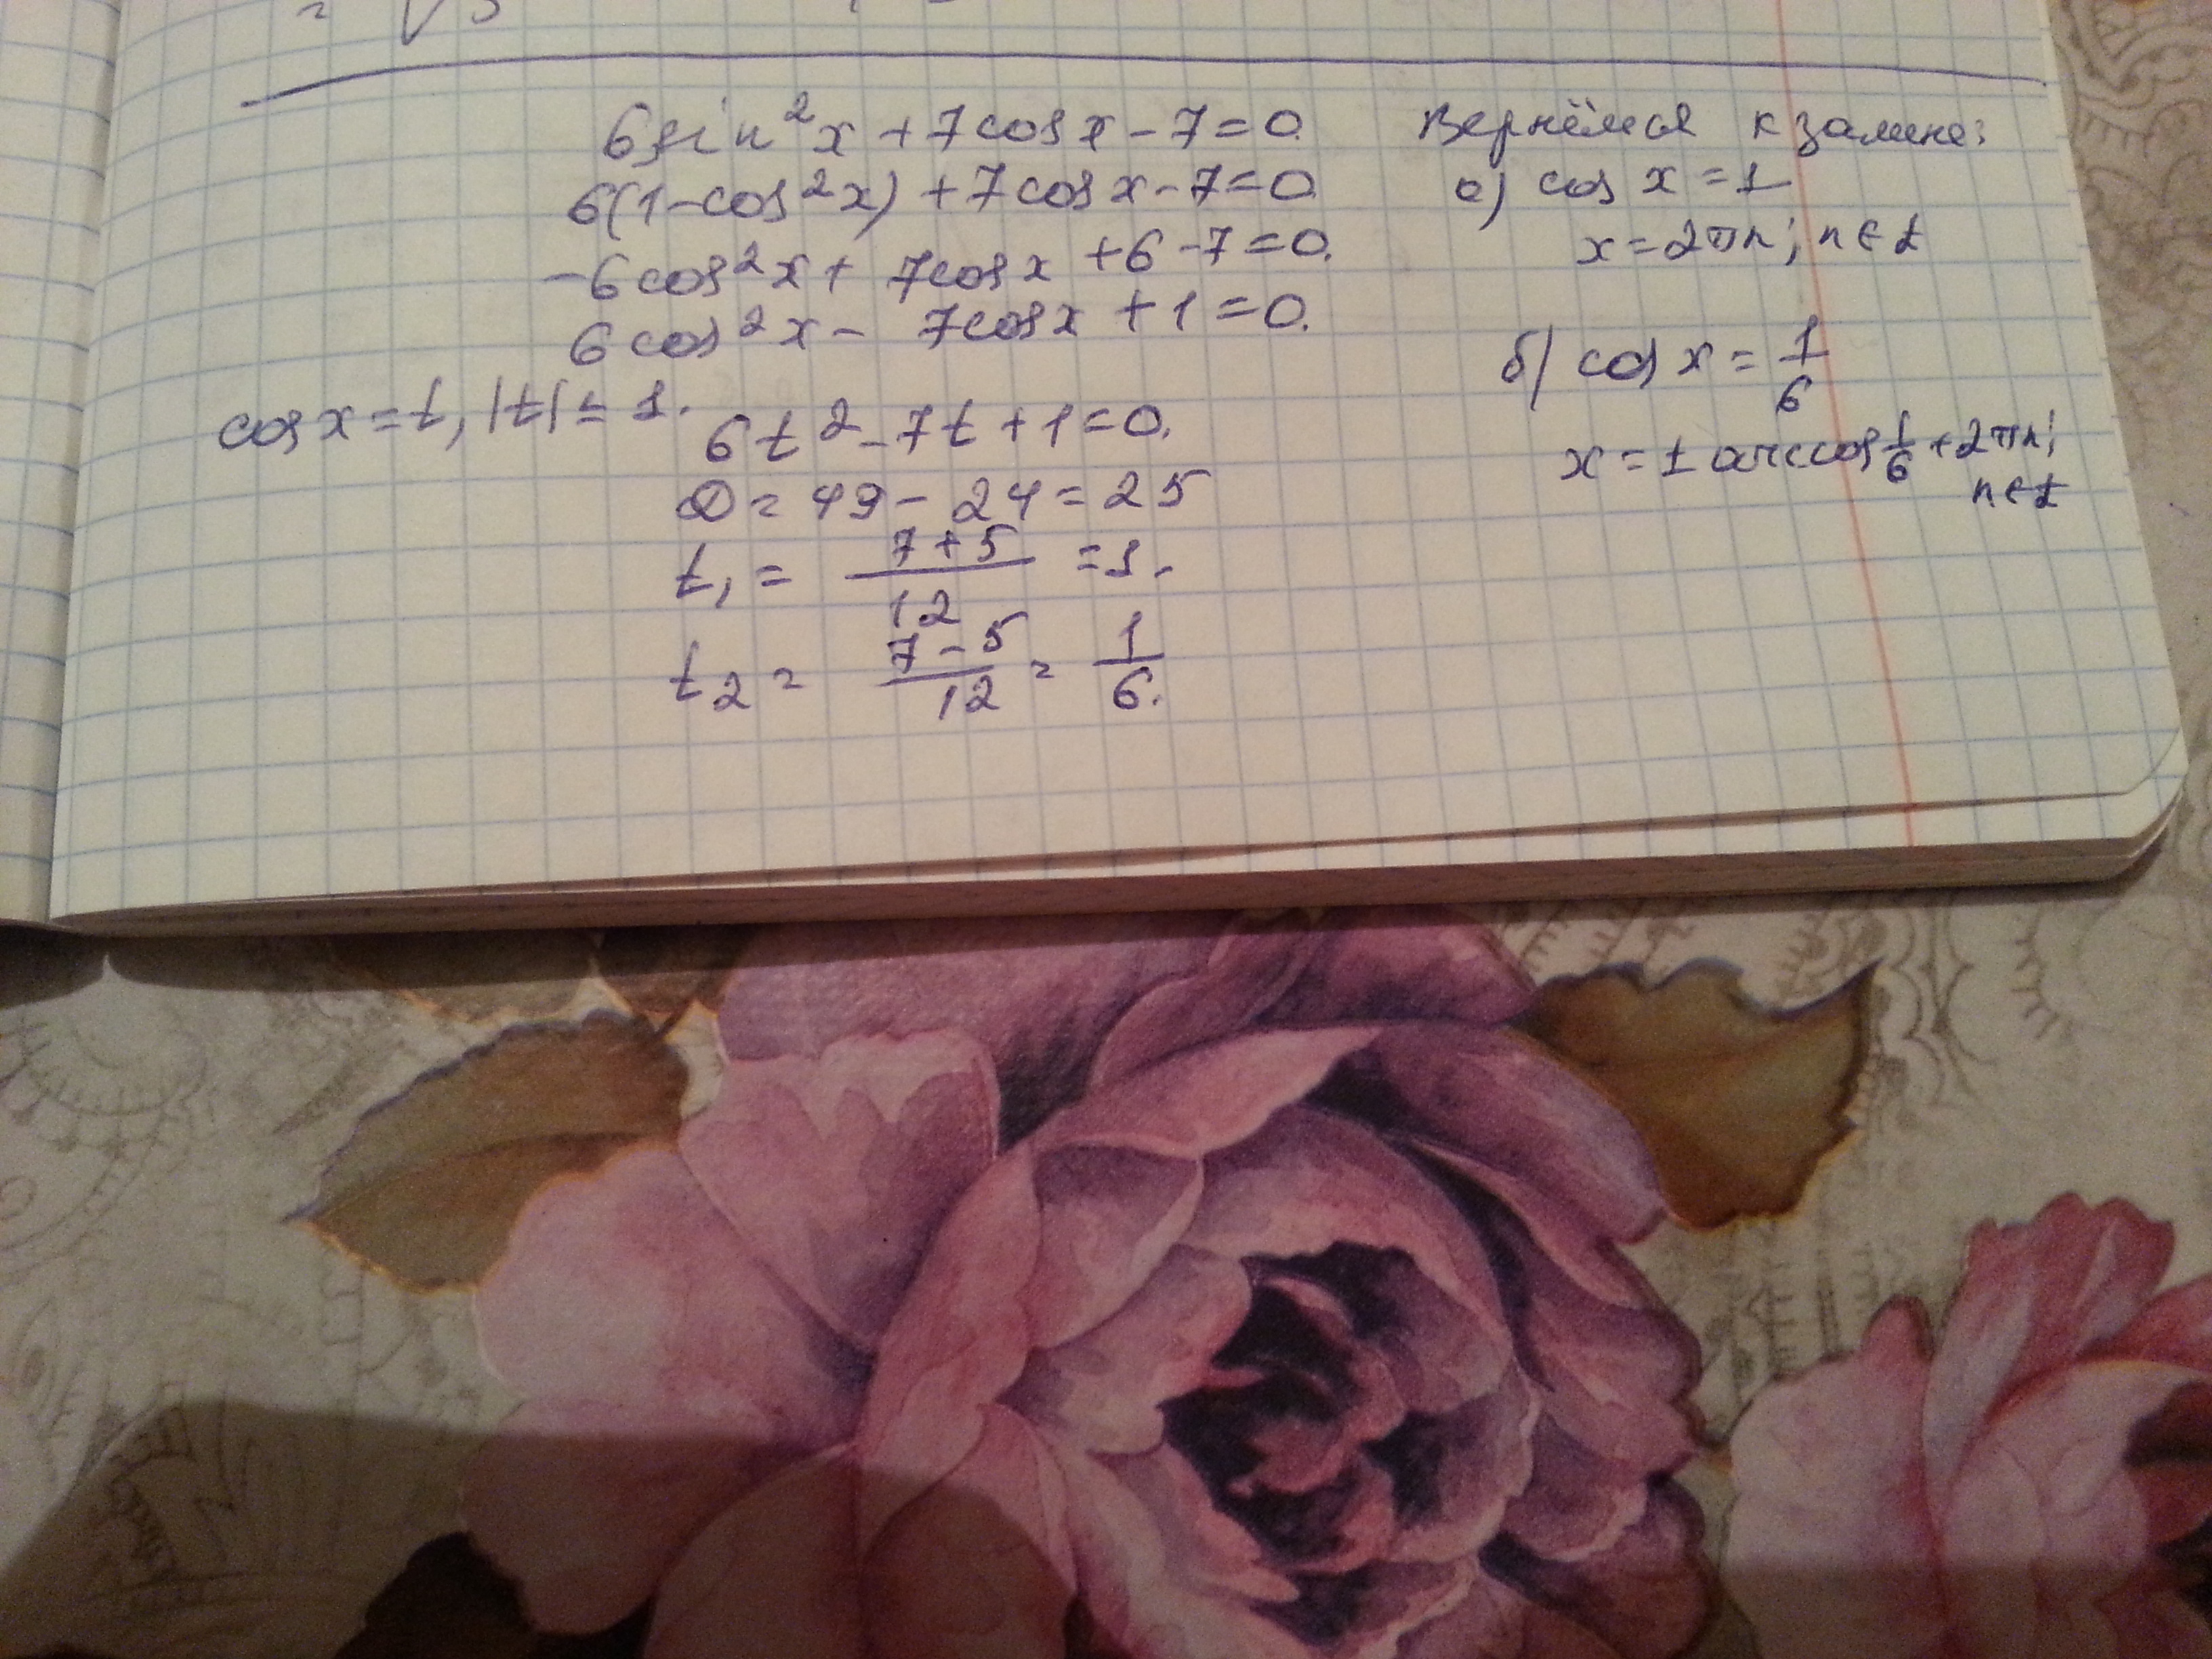 6sin²x + 7cosx - 7 = 0.
6(1-cos²x) + 7cosx - 7 = 0.
-6cos²x + 7cosx + 6 - 7 = 0.
6cos²x - 7cosx + 1 = 0.
cosx = t, |t| ≤ 1.
6t² - 7t + 1 = 0.
D = 49 - 24 = 25
t₁ = (7+5)/12 = 1.
t₂ = (7-5)/12 = 1/6.
Вернёмся к замене:
а) cos x = 1
x = 2πn; n∈Z
б) cos x = 1/6
x = ± arccos 1/6 + 2πn;
n∈Z